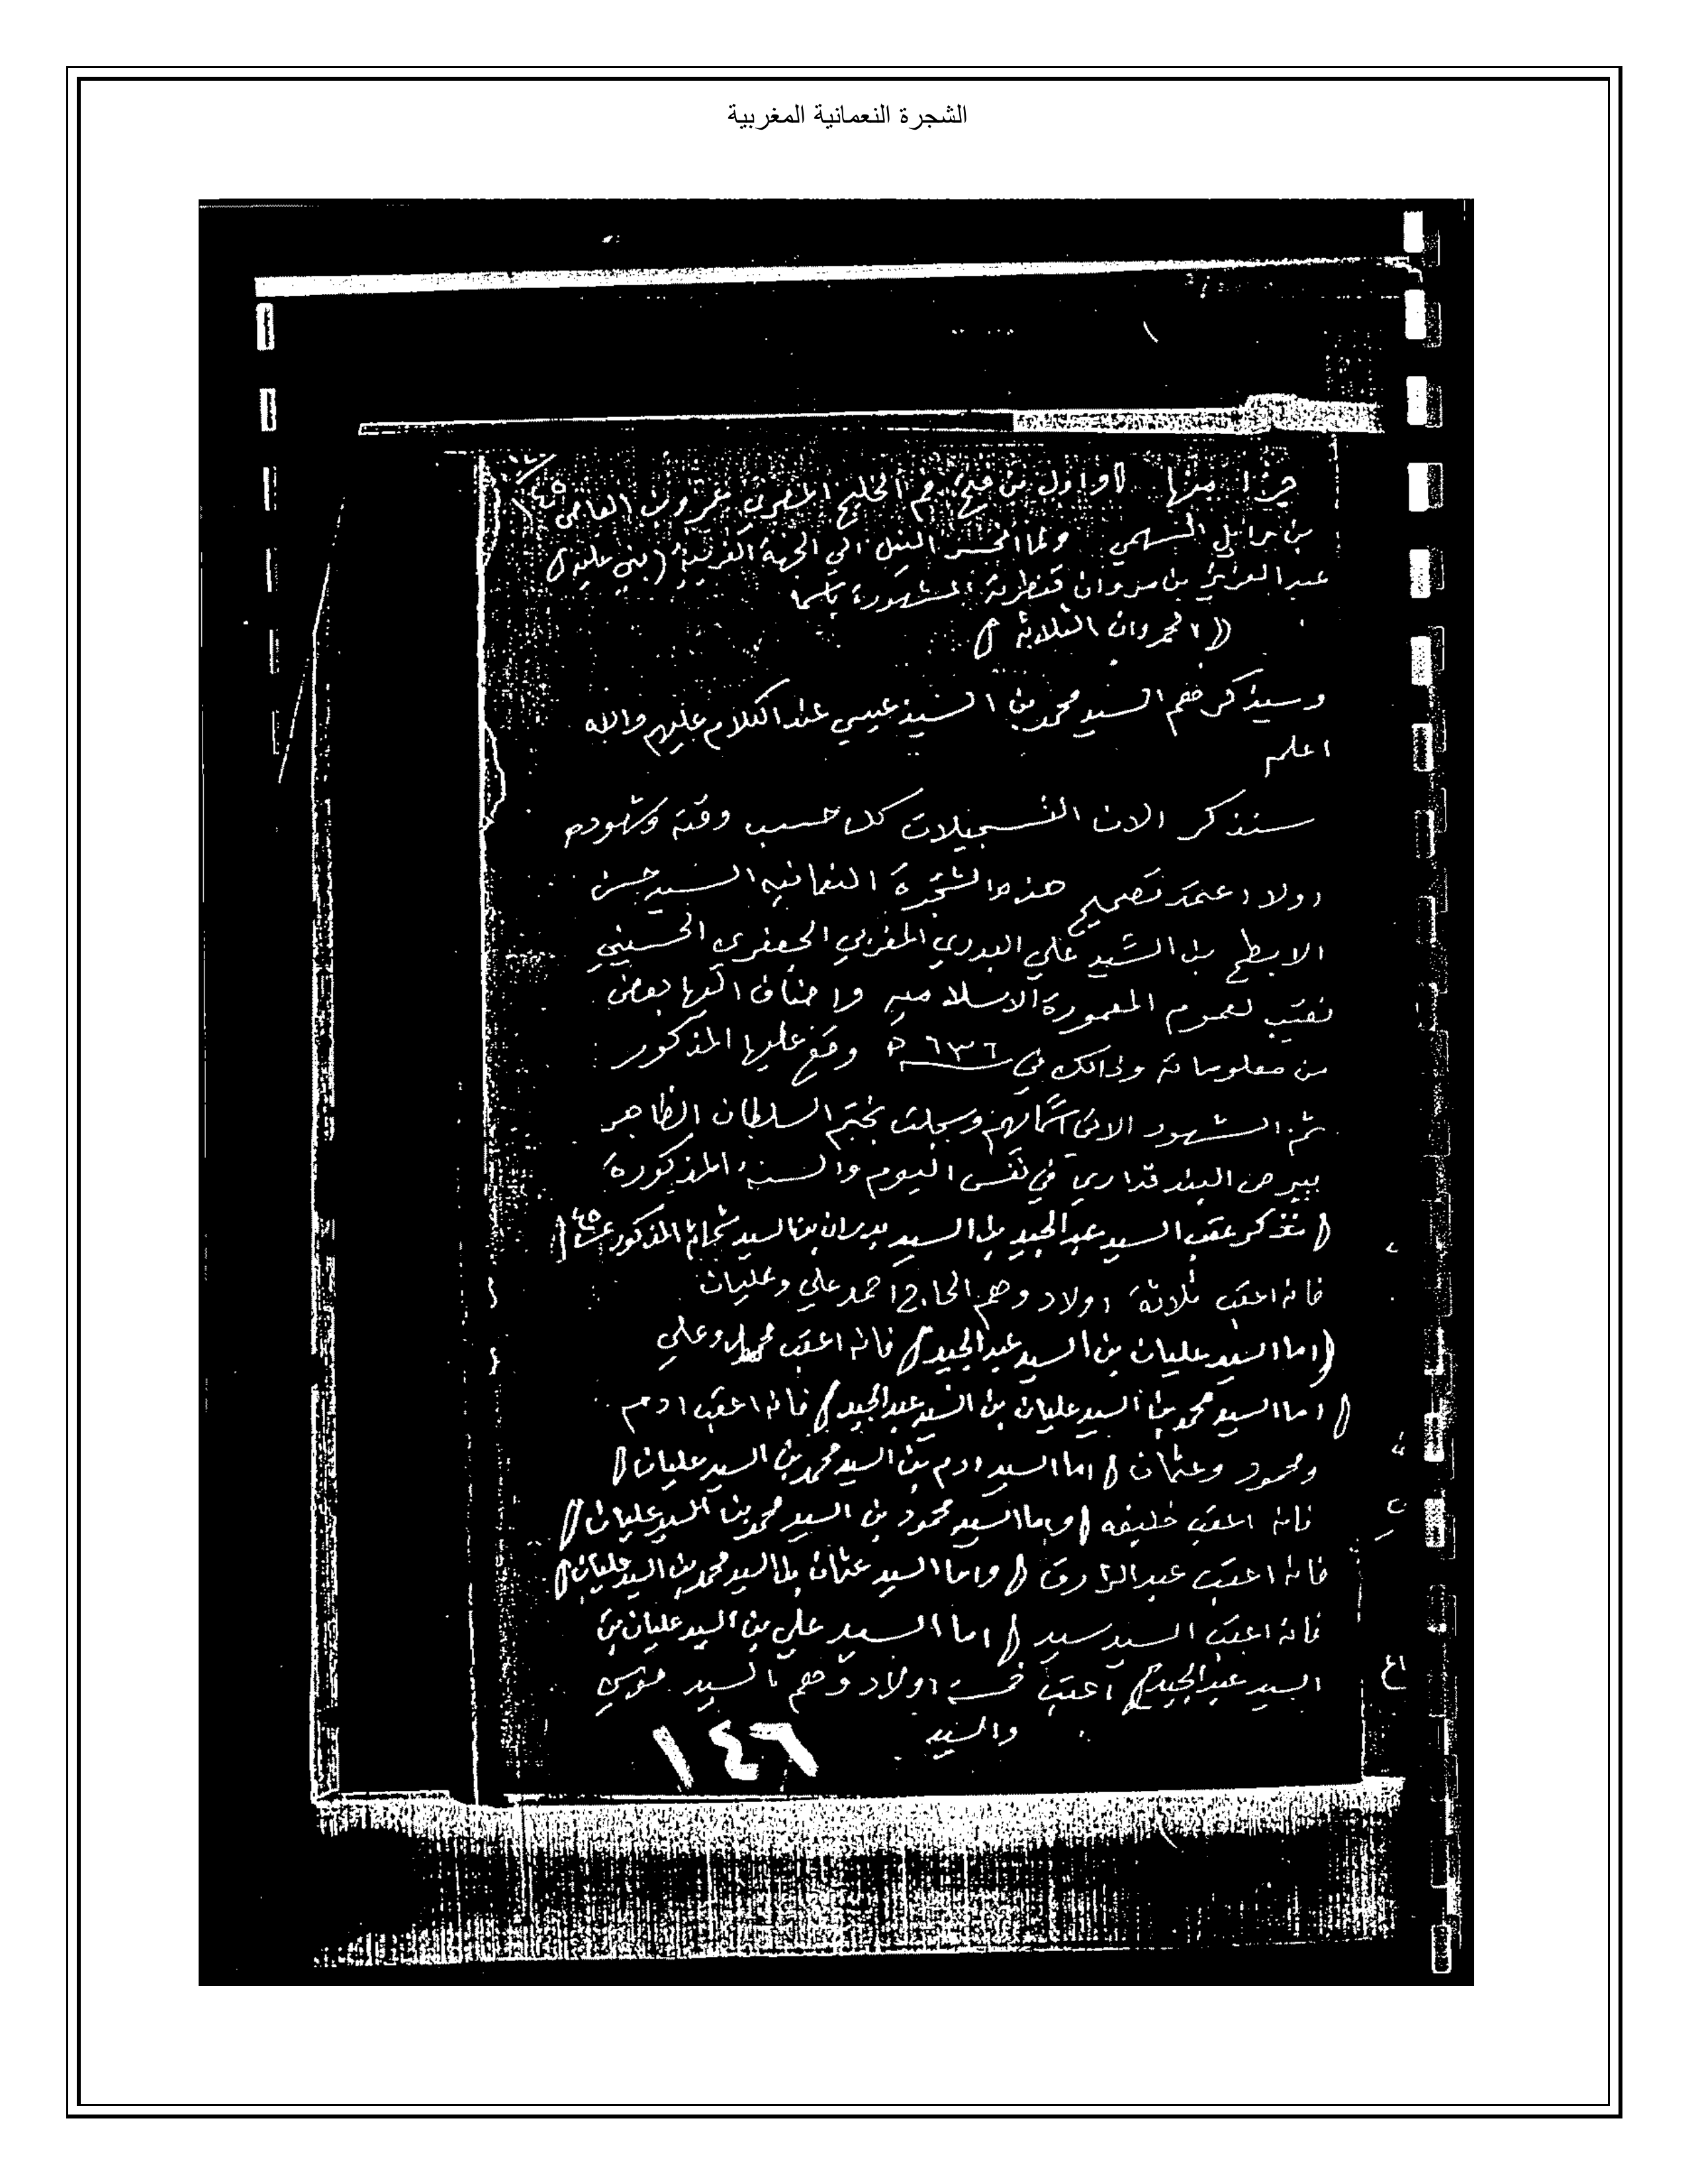 الشجرة النعمانية المغربية
جزا منها اول بن فتح فم الخليج المصري عمرو بن العاص
بن وايل السهمي ولما انحسر النيل الي الجهة الغربية (بني عليه
عبد العزيز بن مروان قنطرته المشهورة باسم
((الحمروان الثلاثة)
وسيذكرهم السيد محمد بن السيد عيسي عند الكلام عليهم والله
اعلم
سنذكر الان التسجيلات كل حسب وقته وشهوده
اولا اعتمد تصحيح هذه الشجرة النعمانيه السيد حسن
الابطح بن السيد علي البدري المغربي الجعفري الحسيني
نقيب لعموم المعمورة الاسلاميه واضاف اليها بعض
من معلوماته وذالك في ٦٣٦ وقع عليها المذكور
ثم الشهود الاتي اسمائهم وسجلت بختم السلطان الظاهر
بيبرص البندقداري في نفس اليوم والسنه المذكورة
( نذكر عقب السيد عبد المجيد بن السيد بدران بن السيد المذكور
فانه اعقب ثلاثة اولاد وهم الحاج احمد علي وعليان
(اما السيد عليان بن السيد عبد المجيد) فانه اعقب محمد وعلي
(اما السيد محمد بن السيد عليان بن السيد عبد المجيد) فانه اعقب ادم
ومحمود وعثمان (اما السيد ادم بن السيد محمد بن السيد عليان)
فانه اعقب خليفه (واما السيد محمود بن السيد محمد بن السيد عليان)
فانه اعقب عبد الرازق (واما السيد عثمان بن السيد محمد بن السيد عليان)
فانه اعقب السيد سيد (اما السيد علي بن السيد عليان بن
السيد عبد المجيد) اعقب خمسة اولاد وهم السيد موسي
والسيد
١٤٦